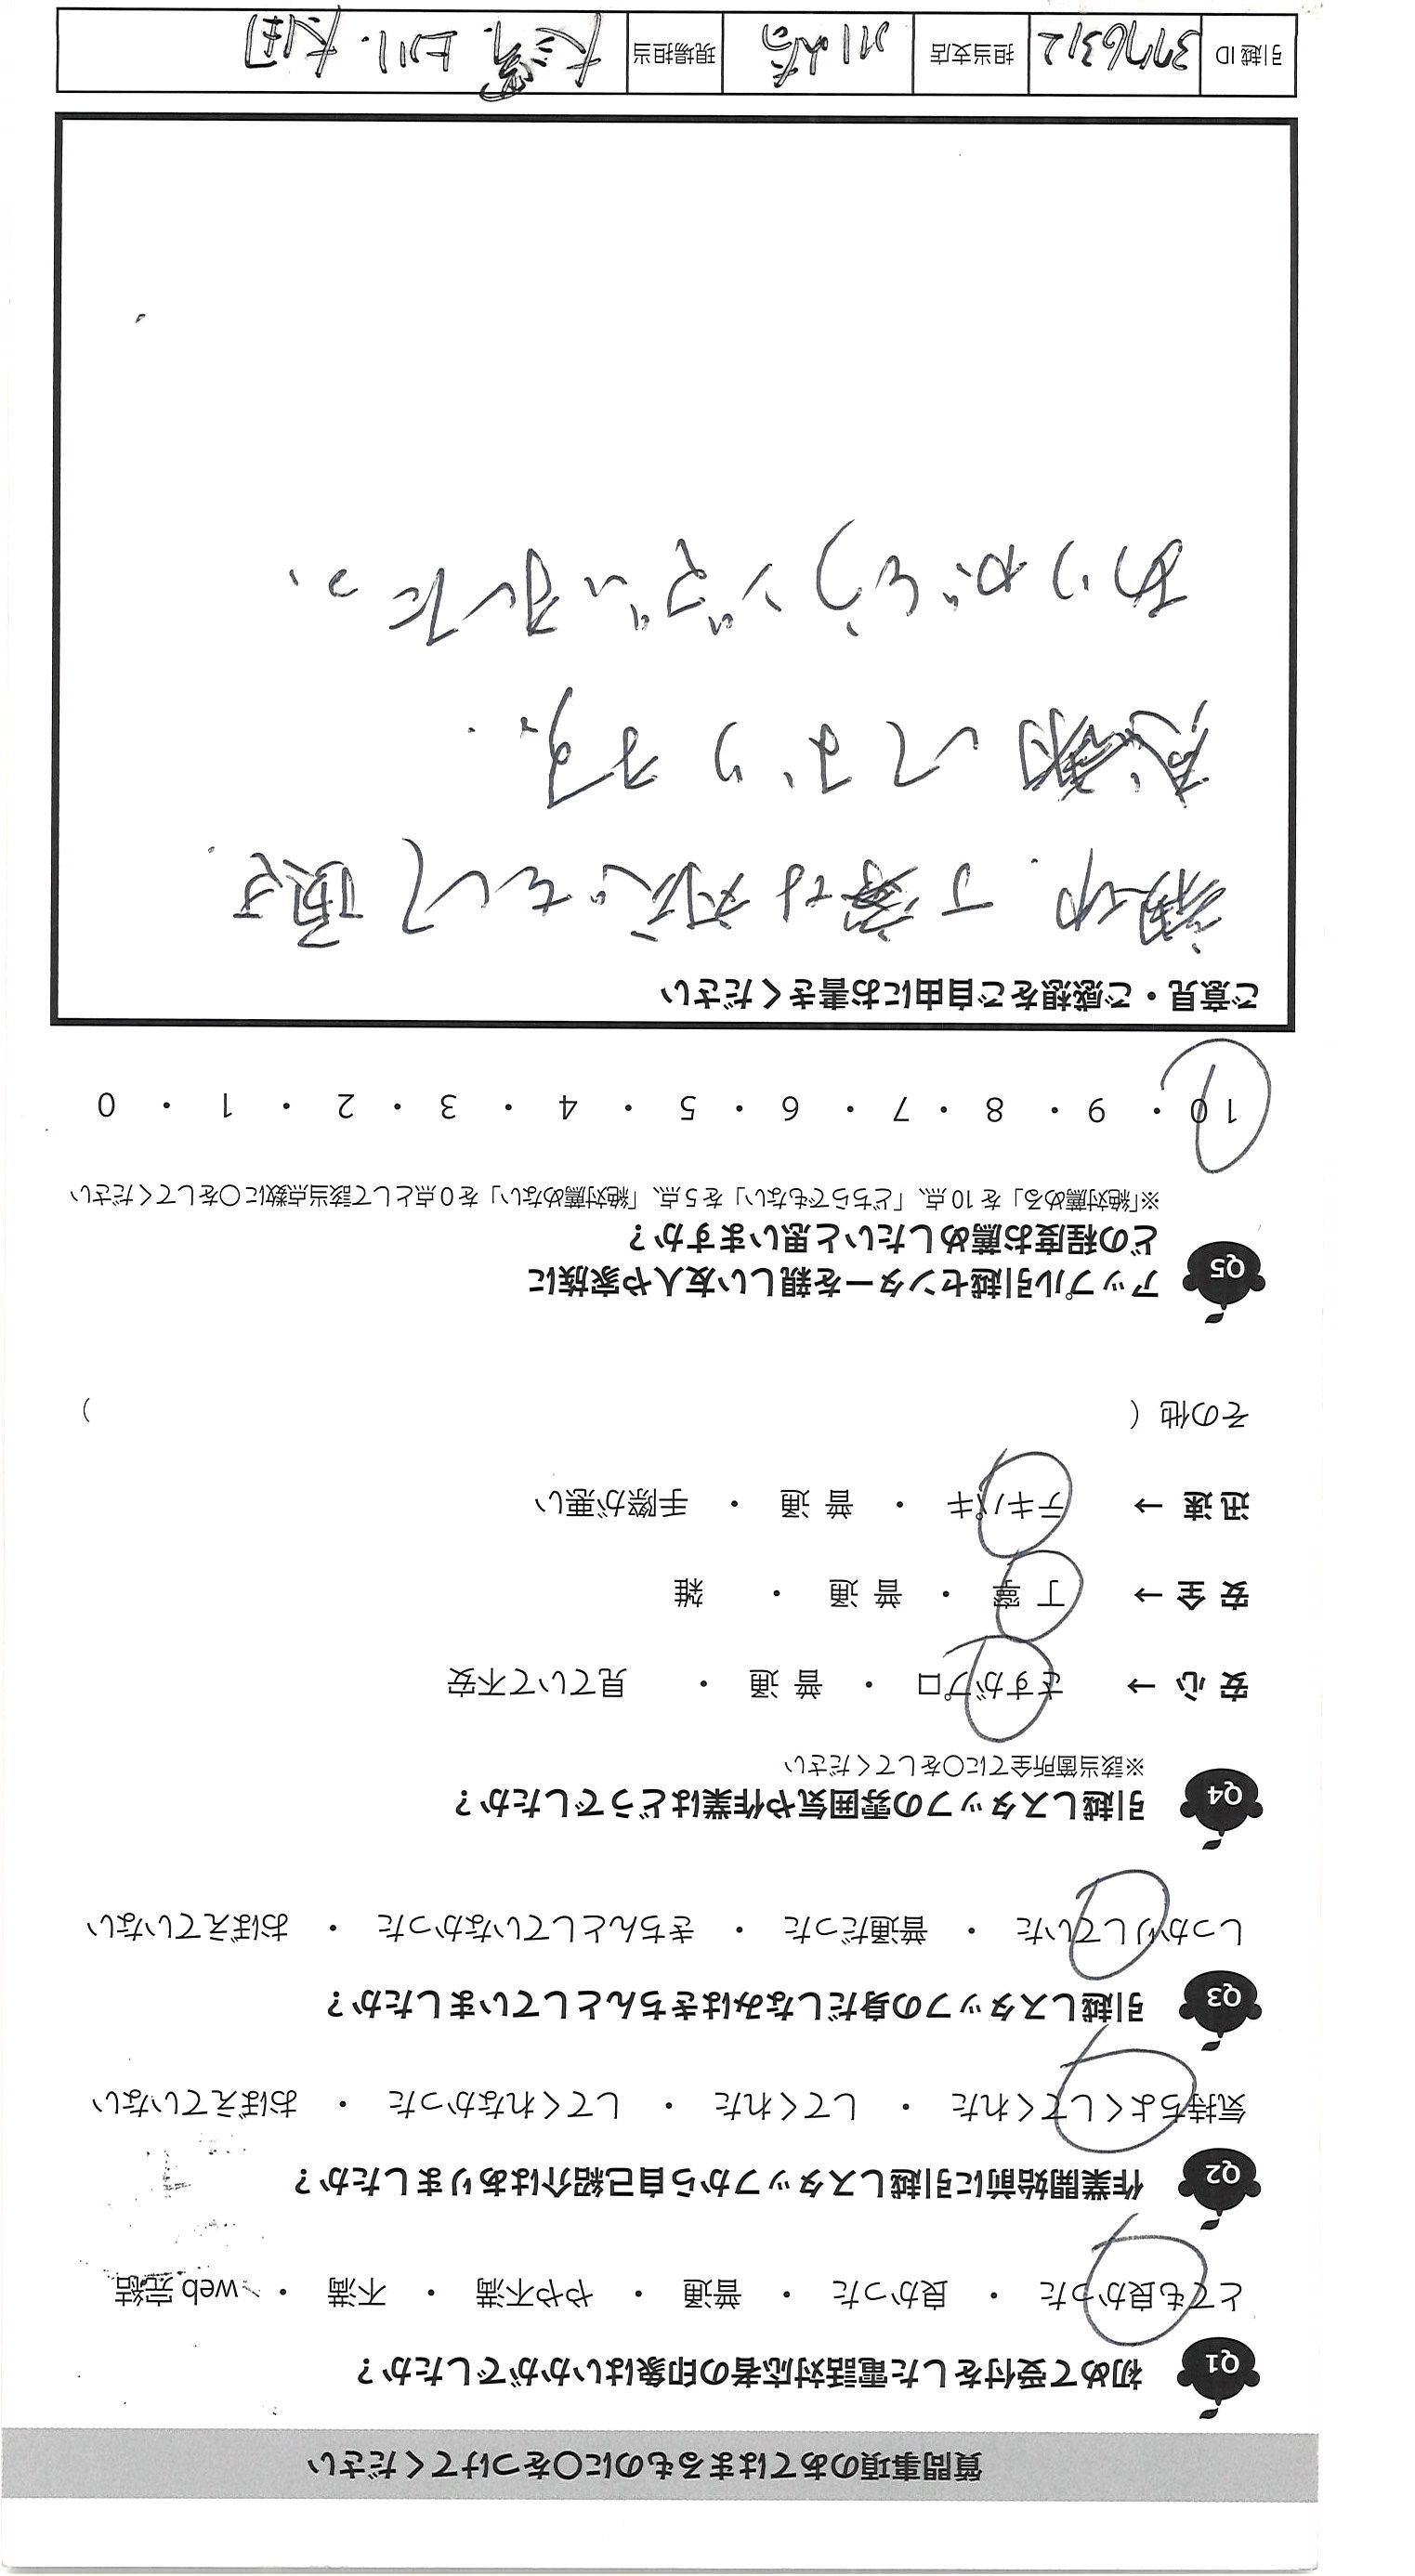 質問事項のあてはまるものに○をつけてください
Q1 初めて受付をした電話対応者の印象はいかがでしたか？
とても良かった ・ 良かった ・ 普通 ・ やや不満 ・ 不満 ・ web 完結
Q2 作業開始前に引越しスタッフから自己紹介はありましたか？
気持ちよくしてくれた ・ してくれた ・ してくれなかった ・ おぼえていない
Q3 引越しスタッフの身だしなみはきちんとしていましたか？
しっかりしていた ・ 普通だった ・ きちんとしていなかった ・ おぼえていない
Q4 引越しスタッフの雰囲気や作業はどうでしたか？
※該当箇所全てに○をしてください
安 心 → さすがプロ ・ 普 通 ・ 見ていて不安
安 全 → 丁 寧 ・ 普 通 ・ 雑
迅 速 → テキパキ ・ 普 通 ・ 手際が悪い
その他（ ）
Q5 アップル引越センターを親しい友人や家族に
どの程度お薦めしたいと思いますか？
※「絶対薦める」を 10 点、「どちらでもない」を 5 点、「絶対薦めない」を 0 点として該当点数に○をしてください
10 ・ 9 ・ 8 ・ 7 ・ 6 ・ 5 ・ 4 ・ 3 ・ 2 ・ 1 ・ 0
ご意見・ご感想をご自由にお書きください
丁寧な対応をして頂き
感謝しております。
ありがとうございました。
引越 ID 3776312 担当支店 川崎 現場担当 上川.